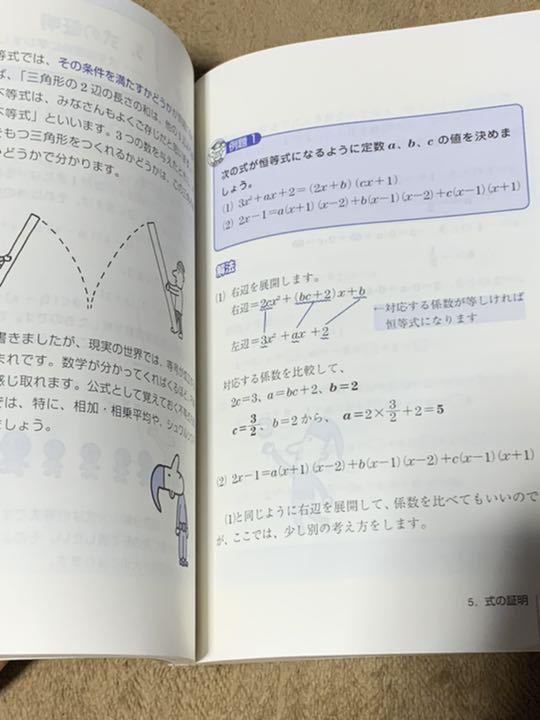 等式では、その条件を満たすかどうかが
ば、「三角形の2辺の長さの和は、他の
不等式は、みなさんもよくご存じだと
不等式」といいます。3つの数を与えたとき
をもつ三角形をつくれるかどうかは、この
かどうかで分かります。
書きましたが、現実の世界では、
まれです。数学が分かってくればくるほど
感じ取れます。公式として覚えておく
では、特に、相加・相乗平均や、シュワルツ
ましょう。
例題1
次の式が恒等式になるように定数a、b、cの値を決めま
しょう。
(1) 3x²+ax+2=(2x+b)(cx+1)
(2) 2x-1=a(x+1)(x-2)+b(x-1)(x-2)+c(x-1)(x+1)
解法
(1) 右辺を展開します。
右辺=2cx²+(bc+2)x+b
←対応する係数が等しければ
恒等式になります
左辺=3x²+ax+2
対応する係数を比較して、
2c=3、a=bc+2、b=2
c=3/2、b=2から、a=2×3/2+2=5
(2) 2x-1=a(x+1)(x-2)+b(x-1)(x-2)+c(x-1)(x+1)
(1)と同じように右辺を展開して、係数を比べてもいいので
が、ここでは、少し別の考え方をします。
5. 式の証明